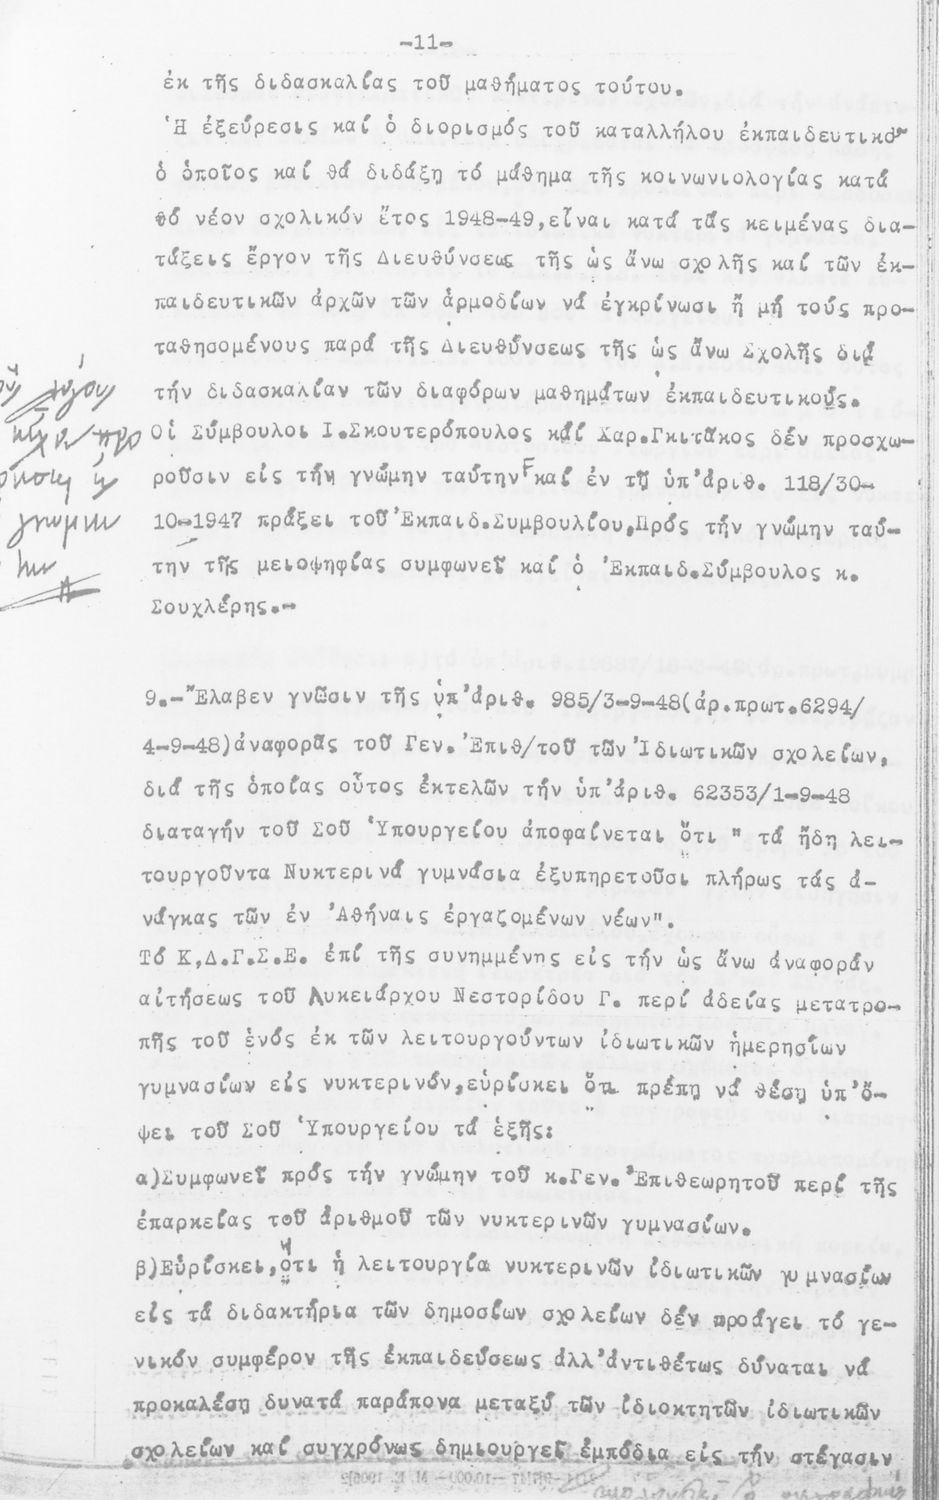 -11-
ἐκ τῆς διδασκαλίας τοῦ μαθήματος τούτου.
Ἡ ἐξεύρεσις καί ὁ διορισμός τοῦ καταλλήλου ἐκπαιδευτικοῦ
ὁ ὁποῖος καί θά διδάξῃ τό μάθημα τῆς κοινωνιολογίας κατά
τό νέον σχολικόν ἔτος 1948-49,εἶναι κατά τάς κειμένας δια-
τάξεις ἔργον τῆς Διευθύνσεως τῆς ὡς ἄνω σχολῆς καί τῶν ἐκ-
παιδευτικῶν ἀρχῶν τῶν ἁρμοδίων νά ἐγκρίνωσι ἤ μή τούς προ-
ταθησομένους παρά τῆς Διευθύνσεως τῆς ὡς ἄνω Σχολῆς διά
τήν διδασκαλίαν τῶν διαφόρων μαθημάτων ἐκπαιδευτικούς.
Οἱ Σύμβουλοι Ι.Σκουτερόπουλος καί Χαρ.Γκιτάκος δέν προσχω-
ροῦσιν εἰς τήν γνώμην ταύτην καί ἐν τῇ ὑπ'ἀριθ. 118/30-
10-1947 πράξει τοῦ Ἐκπαιδ.Συμβουλίου,Πρός τήν γνώμην ταύ-
την τῆς μειοψηφίας συμφωνεῖ καί ὁ Ἐκπαιδ.Σύμβουλος κ.
Σουχλέρης.-
γνώμην
9.-Ἔλαβεν γνῶσιν τῆς ὑπ'ἀριθ. 985/3-9-48(ἀρ.πρωτ.6294/
4-9-48)ἀναφορᾶς τοῦ Γεν.Ἐπιθ/τοῦ τῶν Ἰδιωτικῶν σχολείων,
διά τῆς ὁποίας οὗτος ἐκτελῶν τήν ὑπ'ἀριθ. 62353/1-9-48
διαταγήν τοῦ Σοῦ Ὑπουργείου ἀποφαίνεται ὅτι " τά ἤδη λει-
τουργοῦντα Νυκτερινά γυμνάσια ἐξυπηρετοῦσι πλήρως τάς ἀ-
νάγκας τῶν ἐν Ἀθήναις ἐργαζομένων νέων".
Τό Κ,Δ.Γ.Σ.Ε. ἐπί τῆς συνημμένης εἰς τήν ὡς ἄνω ἀναφοράν
αἰτήσεως τοῦ Λυκειάρχου Νεστορίδου Γ. περί ἀδείας μετατρο-
πῆς τοῦ ἑνός ἐκ τῶν λειτουργούντων ἰδιωτικῶν ἡμερησίων
γυμνασίων εἰς νυκτερινόν,εὑρίσκει ὅτι πρέπῃ νά θέσῃ ὑπ'ὄ-
ψει τοῦ Σοῦ Ὑπουργείου τά ἑξῆς:
α)Συμφωνεῖ πρός τήν γνώμην τοῦ κ.Γεν.Ἐπιθεωρητοῦ περί τῆς
ἐπαρκείας τοῦ ἀριθμοῦ τῶν νυκτερινῶν γυμνασίων.
β)Εὑρίσκει,ὅτι ἡ λειτουργία νυκτερινῶν ἰδιωτικῶν γυμνασίων
εἰς τά διδακτήρια τῶν δημοσίων σχολείων δέν προάγει τό γε-
νικόν συμφέρον τῆς ἐκπαιδεύσεως ἀλλ'ἀντιθέτως δύναται νά
προκαλέσῃ δυνατά παράπονα μεταξύ τῶν ἰδιοκτητῶν ἰδιωτικῶν
σχολείων καί συγχρόνως δημιουργεῖ ἐμπόδια εἰς τήν στέγασιν